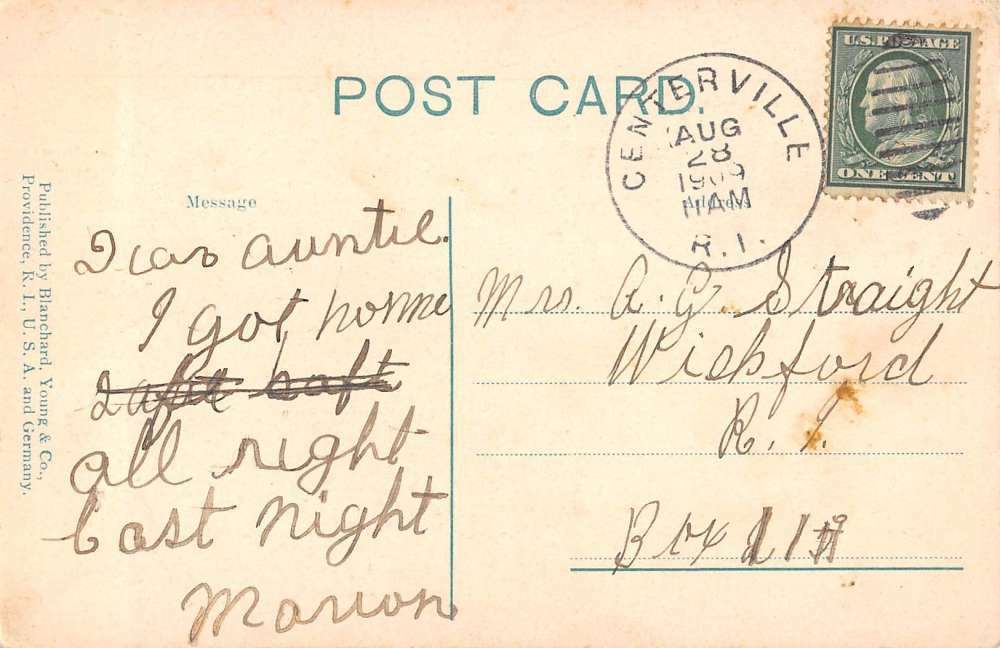 POST CARD.
CENTERVILLE
AUG
28
1909
11 AM
R. I.
U.S. POSTAGE
ONE CENT
Message
Address
Published by Blanchard, Young & Co.,
Providence, R. I., U. S. A. and Germany.
Dear auntie.
I got home
all right
last night
Marion
Mrs. A. G. Straight
Wickford
R. I.
Box